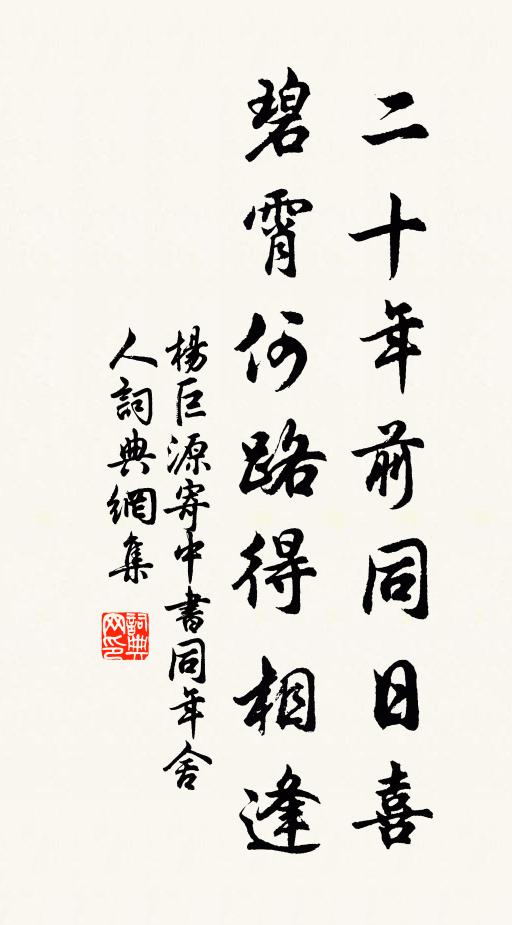 二十年前同日喜
碧霄何路得相逢
楊巨源寄中書同年舍
人詞典網集
詞典
网印